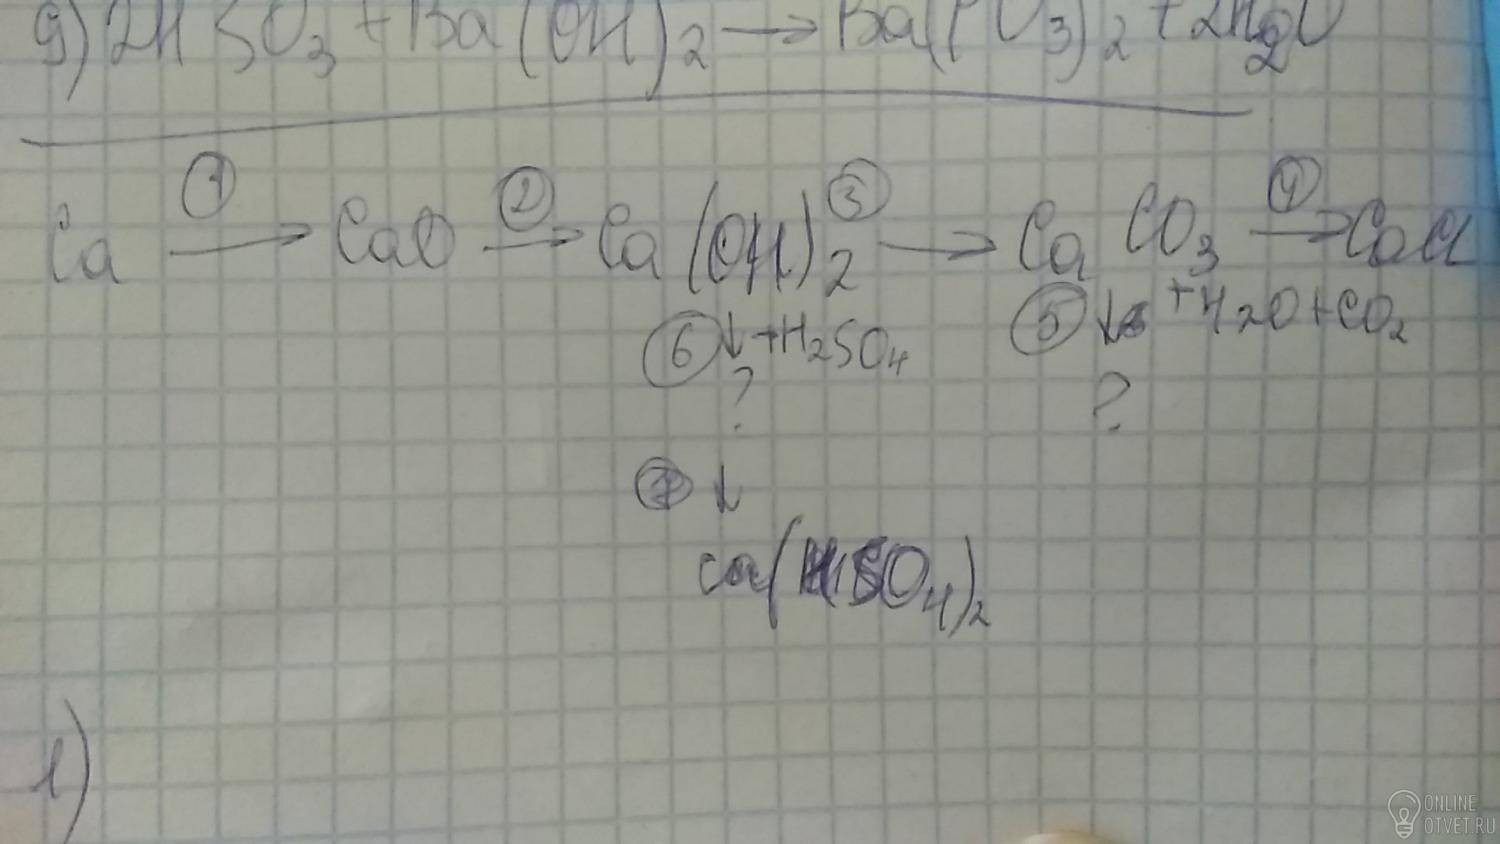 9) 2HSO3 + Ba(OH)2 → Ba(PO3)2 + 2H2O
① ② ③ ④
Ca → CaO → Ca(OH)2 → CaCO3 → CaCl
⑥ ↓ +H2SO4 ⑤ ↓ +H2O+CO2
? ?
⑦ ↓
Ca(HSO4)2
1)
ONLINE
OTVET.RU